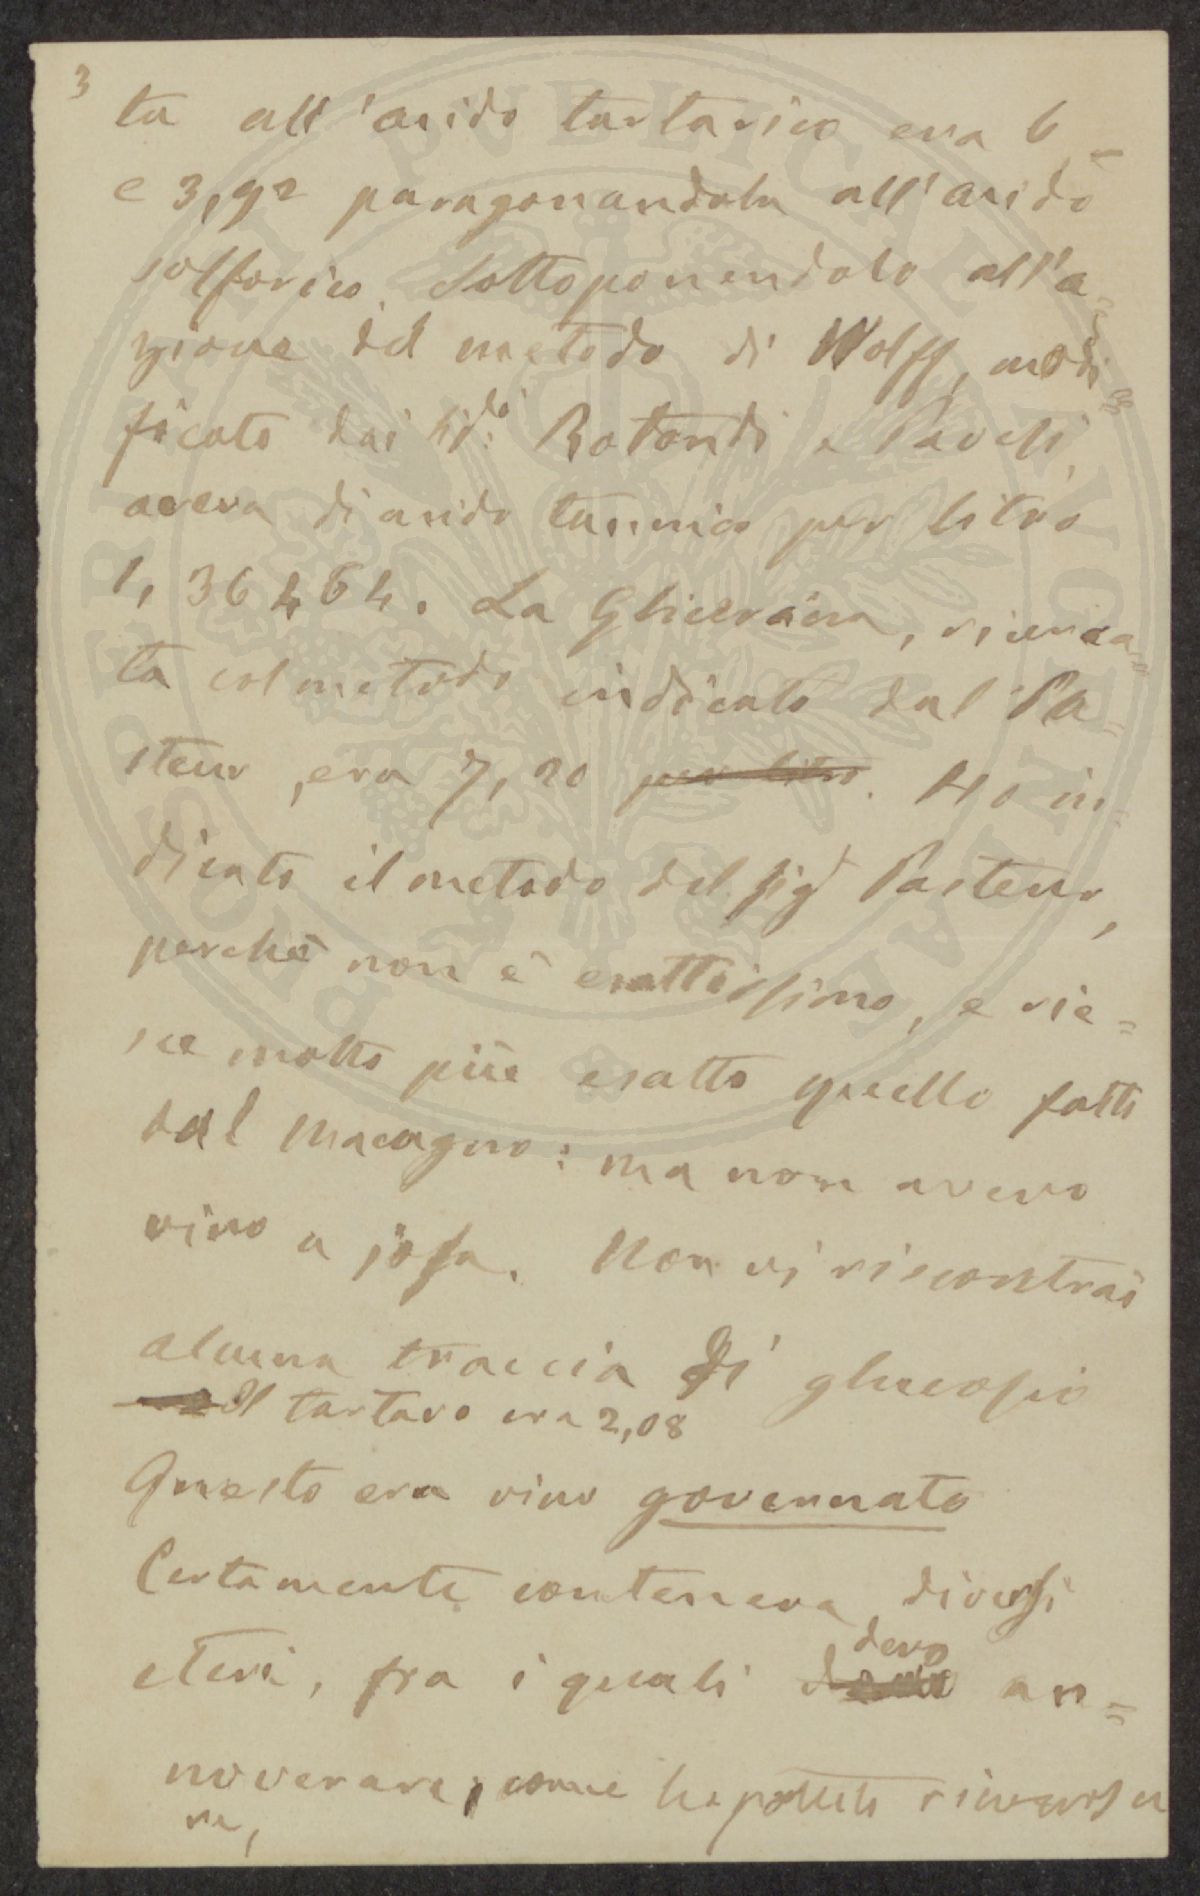 3
ta all'acido tartarico era 6 –
e 3,92 paragonandola all'acido
solforico. Sottoponendolo all'a=
zione del metodo di Wolff, modi=
ficato dai Sig.ri Rotondi e Pavesi,
aveva di acido tannico per litro
1,36464. La Glicerina, ricerca=
ta col metodo indicato dal Pa=
steur, era 7,20 per litro. Ho in=
dicato il metodo del Sigr Pasteur,
perchè non è esattissimo, e rie=
sce molto più esatto quello fatto
dal Macagno: ma non avevo
vino a josa. Non vi riscontrai
alcuna traccia di glucosio
Il tartaro era 2,08
Questo era vino governato
Certamente conteneva diversi
eteri, fra i quali devo an=
noverare, come ho potuto